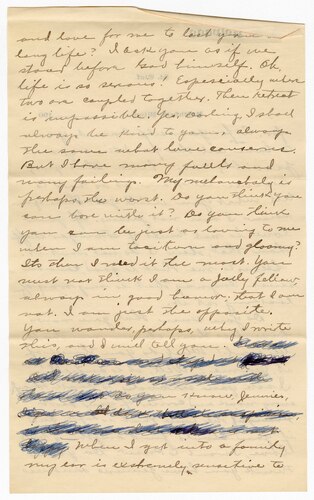 and love for me to last you a
long life? I ask you as if we
stood before God himself. Oh
life is so serious. Especially when
two are coupled together. Then retreat
is impossible. Yes, darling, I shall
always be kind to you, always
the same what love concerns.
But I have many faults and
many failings. My melancholy is
perhaps the worst. Do you think you
can bear with it? Do you think
you can be just as loving to me
when I am taciturn and gloomy?
Its then I need it the most. You
must not think I am a jolly fellow,
always in good humor, that I am
not. I am just the opposite.
You wonder, perhaps, why I write
this, and I will tell you.
so you know, Jennie,
When I get into a family
my ear is extremely sensitive to